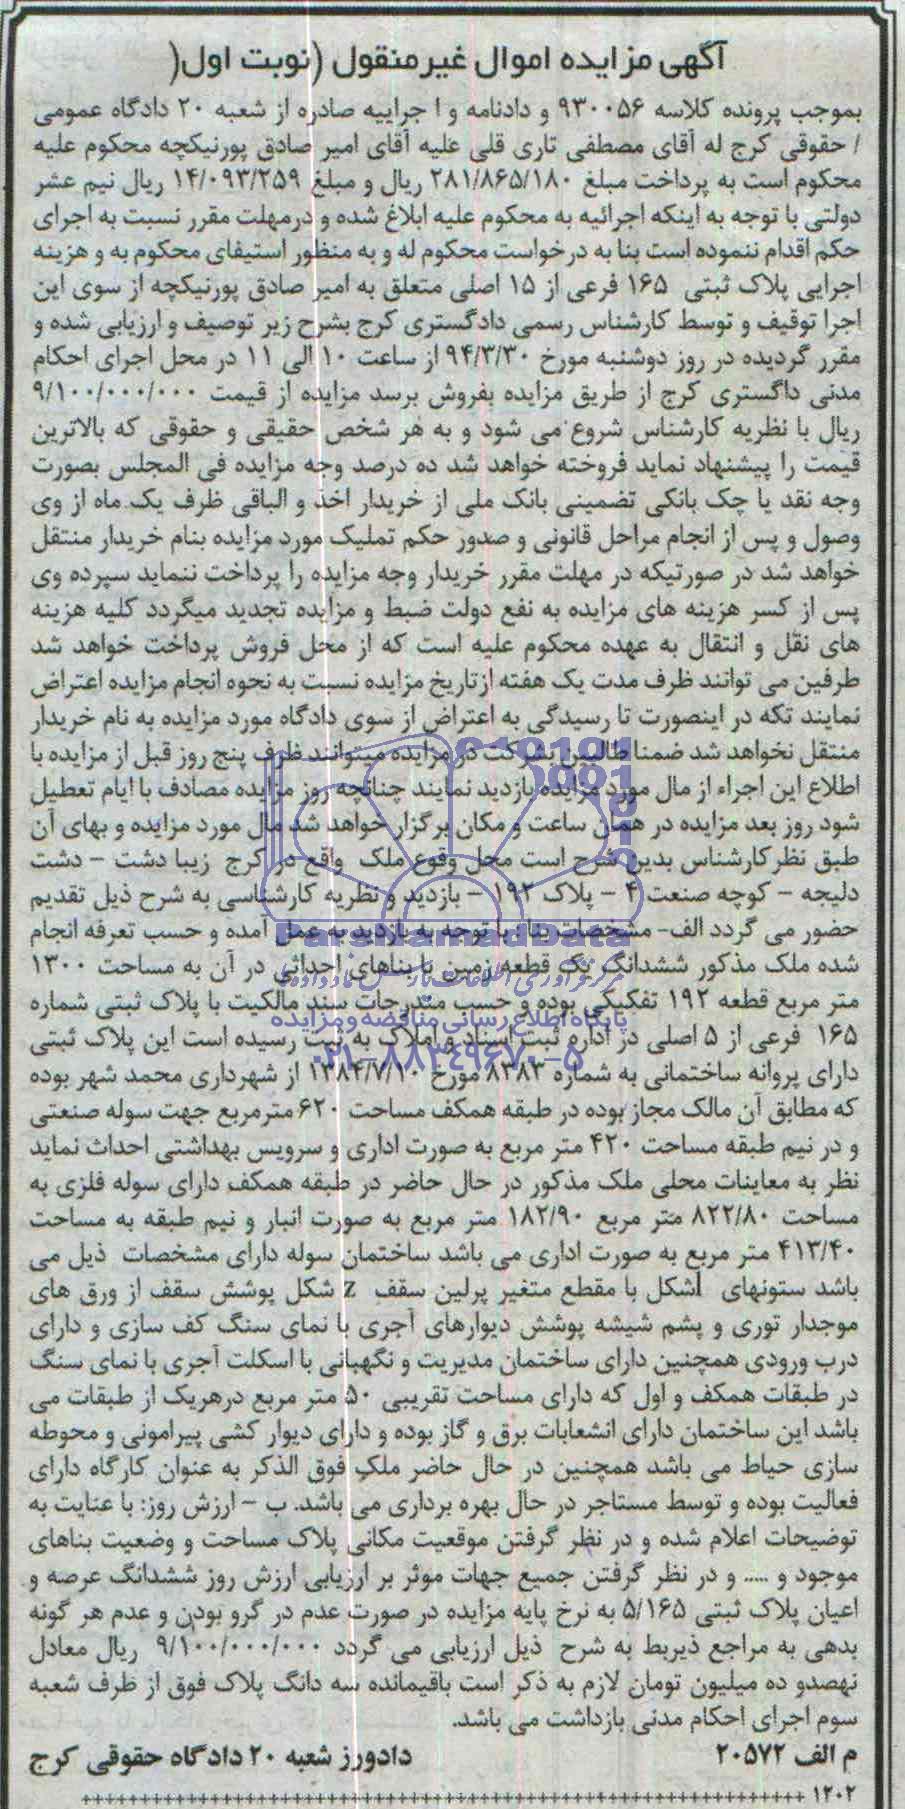 آگهی مزایده اموال غیرمنقول (نوبت اول(
بموجب پرونده کلاسه ۹۳۰۰۵۶ و دادنامه و اجراییه صادره از شعبه ۲۰ دادگاه عمومی
/ حقوقی کرج له آقای مصطفی تاری قلی علیه آقای امیر صادق پورنیکچه محکوم علیه
محکوم است به پرداخت مبلغ ۲۸۱/۸۶۵/۱۸۰ ریال و مبلغ ۱۴/۰۹۳/۲۵۹ ریال نیم عشر
دولتی با توجه به اینکه اجرائیه به محکوم علیه ابلاغ شده و درمهلت مقرر نسبت به اجرای
حکم اقدام ننموده است بنا به درخواست محکوم له و به منظور استیفای محکوم به و هزینه
اجرایی پلاک ثبتی ۱۶۵ فرعی از ۱۵ اصلی متعلق به امیر صادق پورنیکچه از سوی این
اجرا توقیف و توسط کارشناس رسمی دادگستری کرج بشرح زیر توصیف و ارزیابی شده و
مقرر گردیده در روز دوشنبه مورخ ۹۴/۳/۳۰ از ساعت ۱۰ الی ۱۱ در محل اجرای احکام
مدنی داگستری کرج از طریق مزایده بفروش برسد مزایده از قیمت ۹/۱۰۰/۰۰۰/۰۰۰
ریال با نظریه کارشناس شروع می شود و به هر شخص حقیقی و حقوقی که بالاترین
قیمت را پیشنهاد نماید فروخته خواهد شد ده درصد وجه مزایده فی المجلس بصورت
وجه نقد یا چک بانکی تضمینی بانک ملی از خریدار اخذ و الباقی ظرف یک ماه از وی
وصول و پس از انجام مراحل قانونی و صدور حکم تملیک مورد مزایده بنام خریدار منتقل
خواهد شد در صورتیکه در مهلت مقرر خریدار وجه مزایده را پرداخت ننماید سپرده وی
پس از کسر هزینه های مزایده به نفع دولت ضبط و مزایده تجدید میگردد کلیه هزینه
های نقل و انتقال به عهده محکوم علیه است که از محل فروش پرداخت خواهد شد
طرفین می توانند ظرف مدت یک هفته ازتاریخ مزایده نسبت به نحوه انجام مزایده اعتراض
نمایند تکه در اینصورت تا رسیدگی به اعتراض از سوی دادگاه مورد مزایده به نام خریدار
منتقل نخواهد شد ضمنا طالبین بشرکت در مزایده میتوانند ظرف پنج روز قبل از مزایده با
اطلاع این اجراء از مال مورد مزایده بازدید نمایند چنانچه روز مزایده مصادف با ایام تعطیل
شود روز بعد مزایده در همان ساعت و مکان برگزار خواهد شد مال مورد مزایده و بهای آن
طبق نظر کارشناس بدین شرح است محل وقوع ملک واقع در کرج زیبا دشت – دشت
دلیجه – کوچه صنعت ۴ – پلاک ۱۹۲ – بازدید و نظریه کارشناسی به شرح ذیل تقدیم
حضور می گردد الف- مشخصات بنا: با توجه به بازدید به عمل آمده و حسب تعرفه انجام
شده ملک مذکور ششدانگ یک قطعه زمین با بناهای احداثی در آن به مساحت ۱۳۰۰
متر مربع قطعه ۱۹۲ تفکیکی بوده و حسب مندرجات سند مالکیت با پلاک ثبتی شماره
۱۶۵ فرعی از ۵ اصلی در اداره ثبت اسناد و املاک به ثبت رسیده است این پلاک ثبتی
دارای پروانه ساختمانی به شماره ۸۳۸۳ مورخ ۱۳۸۴/۷/۱۰ از شهرداری محمد شهر بوده
که مطابق آن مالک مجاز بوده در طبقه همکف مساحت ۶۲۰ مترمربع جهت سوله صنعتی
و در نیم طبقه مساحت ۴۲۰ متر مربع به صورت اداری و سرویس بهداشتی احداث نماید
نظر به معاینات محلی ملک مذکور در حال حاضر در طبقه همکف دارای سوله فلزی به
مساحت ۸۲۲/۸۰ متر مربع ۱۸۲/۹۰ متر مربع به صورت انبار و نیم طبقه به مساحت
۴۱۳/۴۰ متر مربع به صورت اداری می باشد ساختمان سوله دارای مشخصات ذیل می
باشد ستونهای Iشکل با مقطع متغیر پرلین سقف z شکل پوشش سقف از ورق های
موجدار توری و پشم شیشه پوشش دیوارهای آجری با نمای سنگ کف سازی و دارای
درب ورودی همچنین دارای ساختمان مدیریت و نگهبانی با اسکلت آجری با نمای سنگ
در طبقات همکف و اول که دارای مساحت تقریبی ۵۰ متر مربع درهریک از طبقات می
باشد این ساختمان دارای انشعابات برق و گاز بوده و دارای دیوار کشی پیرامونی و محوطه
سازی حیاط می باشد همچنین در حال حاضر ملک فوق الذکر به عنوان کارگاه دارای
فعالیت بوده و توسط مستاجر در حال بهره برداری می باشد. ب – ارزش روز: با عنایت به
توضیحات اعلام شده و در نظر گرفتن موقعیت مکانی پلاک مساحت و وضعیت بناهای
موجود و ..... و در نظر گرفتن جمیع جهات موثر بر ارزیابی ارزش روز ششدانگ عرصه و
اعیان پلاک ثبتی ۵/۱۶۵ به نرخ پایه مزایده در صورت عدم در گرو بودن و عدم هر گونه
بدهی به مراجع ذیربط به شرح ذیل ارزیابی می گردد ۹/۱۰۰/۰۰۰/۰۰۰ ریال معادل
نهصدو ده میلیون تومان لازم به ذکر است باقیمانده سه دانگ پلاک فوق از طرف شعبه
سوم اجرای احکام مدنی بازداشت می باشد.
م الف ۲۰۵۷۲ دادورز شعبه ۲۰ دادگاه حقوقی کرج
۱۲۰۲
ParsNamadData
پایگاه اطلاع رسانی مناقصه و مزایده
۰۲۱-۸۸۳۴۹۶۷۰-۵